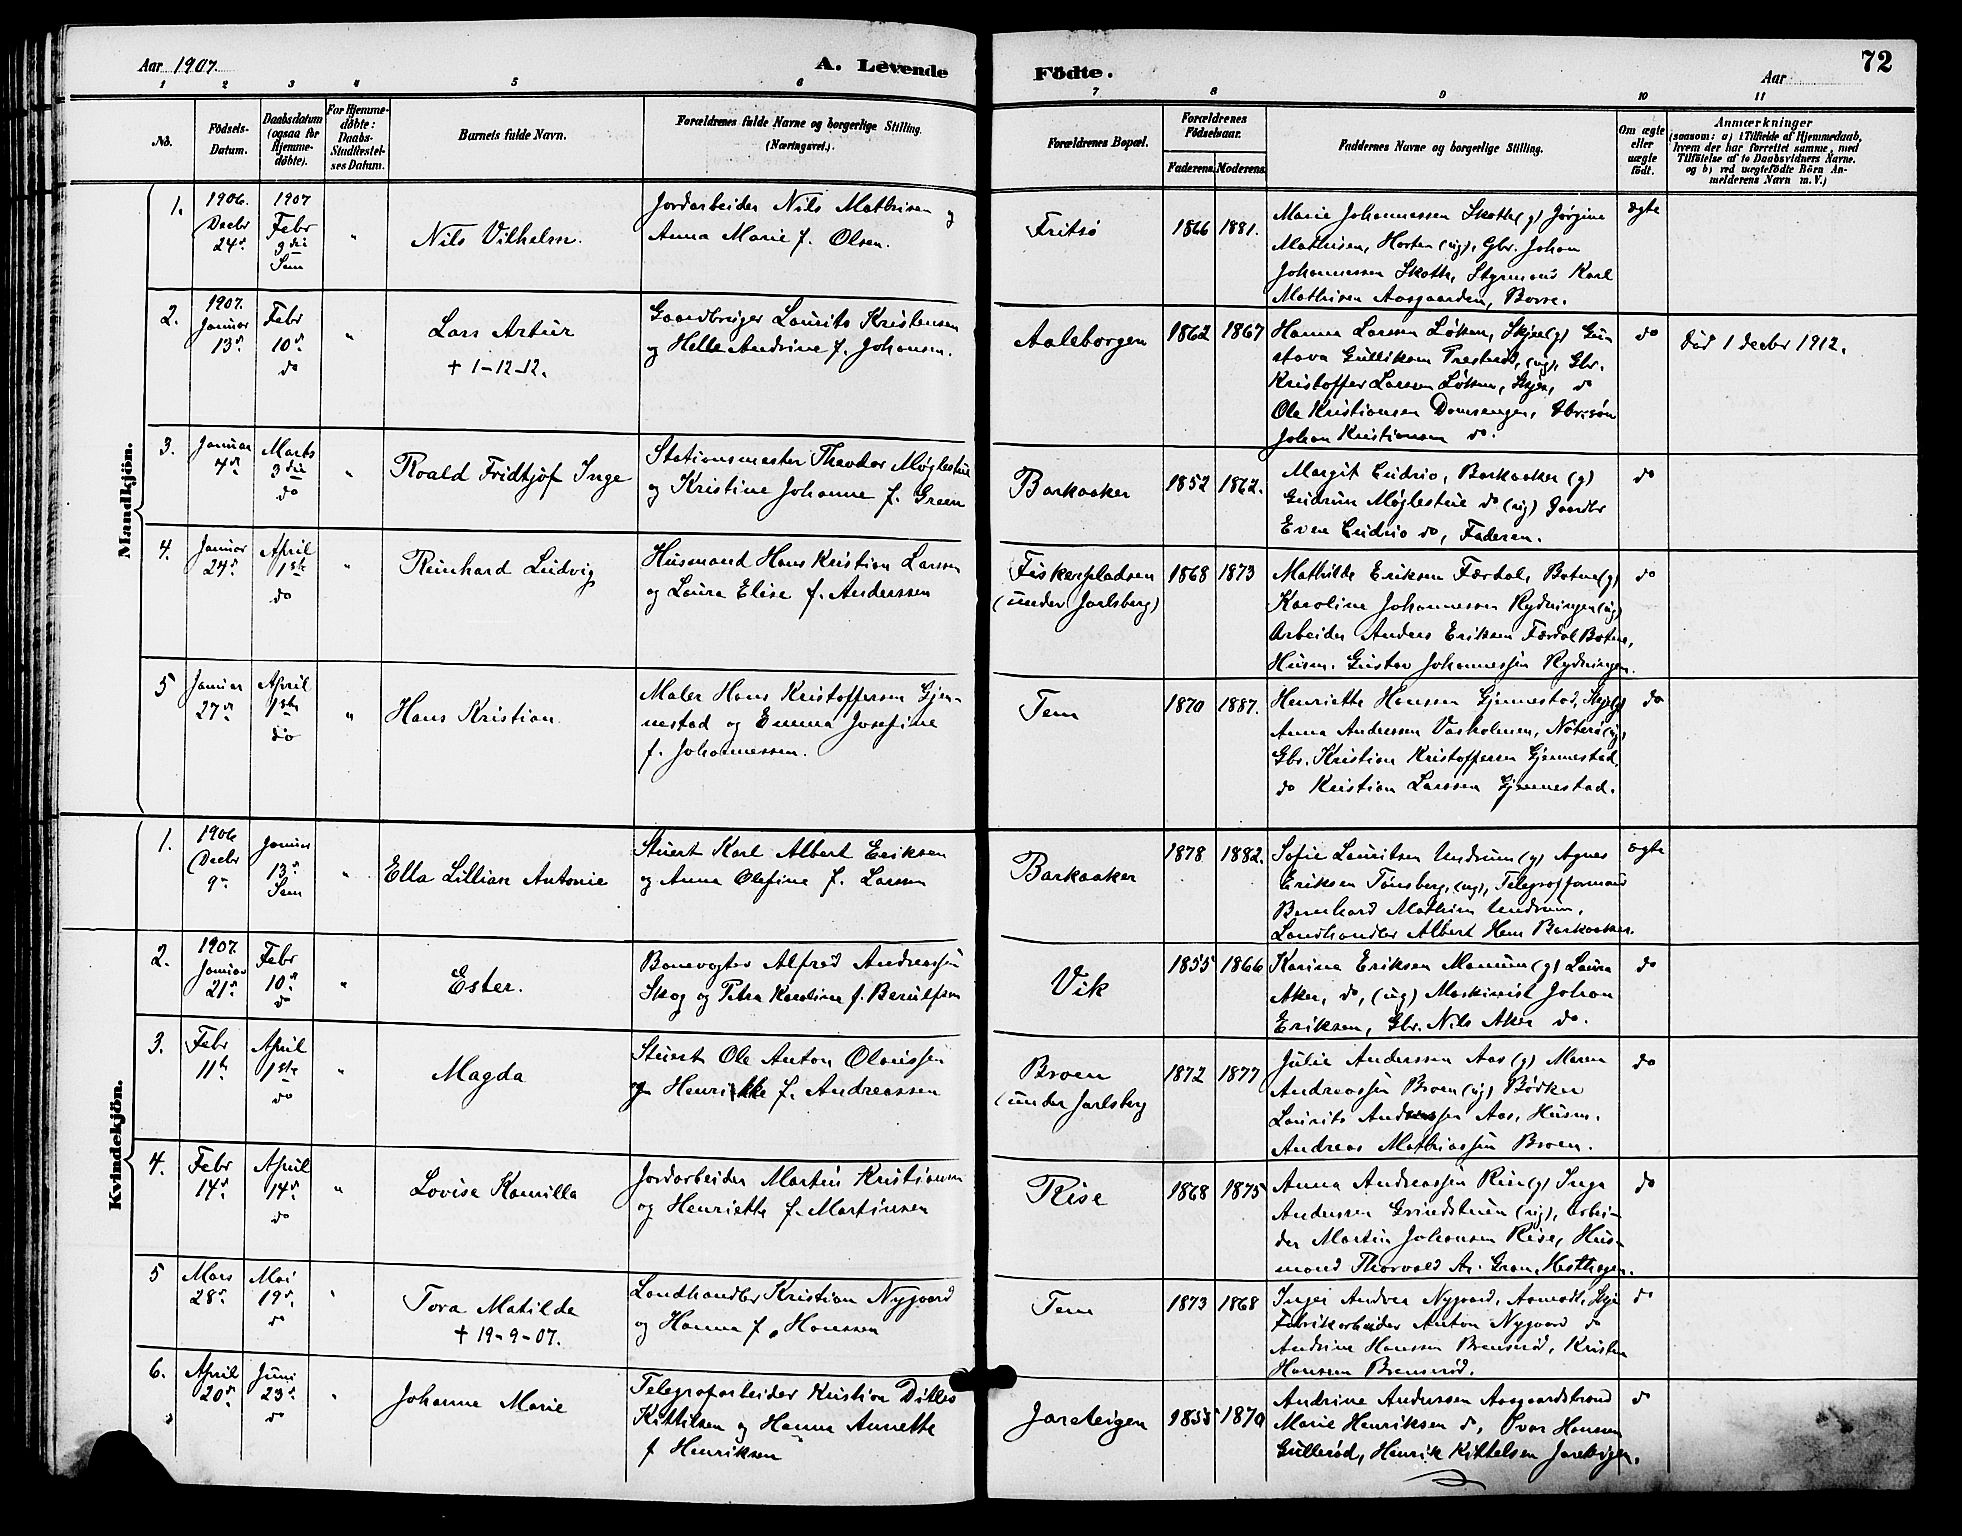 Aar 1907.
A. Levende
Födte.
Aar
72
1 2 3 4 5 6 7 8 9 10 11
No.
Födsels-
Datum.
Daabsdatum
(ogsaa for
Hjemme-
döbte).
For Hjemme-
döbte:
Daabs-
Stadfæstel-
ses Datum.
Barnets fulde Navn.
Forældrenes fulde Navne og borgerlige Stilling.
(Næringsvei.)
Forældrenes Bopæl.
Forældrenes
Födselsaar.
Faderens. Moderens.
Faddernes Navne og borgerlige Stilling.
Om ægte
eller
uægte
födt.
Anmærkninger
(saasom: a) i Tilfælde af Hjemmedaab,
hvem der har forrettet samme, med
Tilföielse af to Daabsvidners Navne.
og b) ved uægtefödte Börn An-
melderens Navn m. V.)
Mandkjön.
1.
1906.
Decbr
24d.
1907
Febr
3die
Sem
"
Nils Vilhelm.
Jordarbeider Nils Mathisen og
Anna Marie f. Olsen.
Fritsø
1866 1881.
Marie Johannessen Skotte (g) Jørgine
Mathisen, Horten (ug), Gbr. Johan
Johannessen Skotte, Styrmand Karl
Mathisen Aasgaarden, Borre.
ægte
2.
1907.
Januar
13d.
Febr
10d.
do
"
Lars Artur
+ 1-12-12.
Gaardbruger Laurits Kristensen
og Helle Andrine f. Johansen.
Aaleborgen
1862 1867
Hanna Larsen Løken, Skjee (g) Gu-
stava Gulliksen Presterød, (ug), Gbr.
Kristoffer Larsen Løken, Skjee, do
Ole Kristiansen Domsengen, Gbr.søn
Johan Kristiansen do.
do
Död 1 decbr 1912.
3.
Januar
4d.
Marts
3die
do
"
Roald Fridtjof Inge
Stationsmester Theodor Møglestue
og Kristine Johanne f. Green
Barkaaker
1852 1862.
Margit Eudrio, Barkaaker (g)
Gudrun Møglestue do (ug) Gaardbr
Even Eudrio do, Faderen.
do
4.
Januar
24d.
April
1ste
do
"
Reinhard Ludvig
Husmand Hans Kristian Larsen
og Laura Elise f. Anderssen
Fiskerpladsen
(under Jarlsberg)
1868 1873
Mathilde Eriksen Færdal, Botne (g)
Karoline Johannessen Rydningen (ug)
Arbeider Anders Eriksen Færdal Botne,
Husm. Gustav Johannessen Rydningen.
do
5
Januar
27d.
April
1ste
do
"
Hans Kristian.
Maler Hans Kristoffersen Gjen-
nestad og Emma Josefine
f. Johannessen.
Tem
1870 1887.
Henriette Hanssen Gjennestad, Skjee (g)
Anna Andressen Vasholmen, Nøterø (ug),
Gbr. Kristian Kristoffersen Gjennestad,
do Kristian Larssen Gjennestad.
do
Kvindekjön.
1.
1906
Decbr
9de
Januar
13d.
Sem
"
Ella Lillian Antonie
Stuert Karl Albert Eriksen
og Anna Olefine f. Larsen
Barkaaker
1878 1882.
Sofie Lauritsen Undrum (g) Agnes
Eriksen Tønsberg, (ug), Telegrafformand
Bernhard Mathisen Undrum,
Landhandler Albert Hem Barkaaker.
ægte
2.
1907.
Januar
21d.
Febr
10d.
do
"
Ester.
Banevogter Alfred Andreassen
Skog og Petra Karoline f. Berulfsen
Vik
1855 1866
Karina Eriksen Manum (g) Laura
Aker, do, (ug) Maskinist Johan
Eriksen, Gbr. Nils Aker do.
do
3.
Febr
11te
April
1ste
do
"
Magda
Stuert Ole Anton Olaussen
og Henrikke f. Andreassen
Broen
(under Jarlsberg
1872 1877
Julie Anderssen Aas (g) Maren
Andreassen Broen (ug) Bødker
Laurits Anderssen Aas, Husm.
Andreas Mathiassen Broen.
do
4.
Febr
14d.
April
14d.
do
"
Lovise Kamilla
Jordarbeider Martin Kristiansen
og Henriette f. Martinsen
Rise
1868 1875
Anna Andreassen Rise (g) Inga
Anderssen Grindstuen (ug), Arbei-
der Martin Johansen Rise, Hus-
mand Thorvald An. Gran, Hesthagen.
do
5
Mars
28d.
Mai
19d.
do
"
Tora Matilde
+ 19-9-07.
Landhandler Kristian Nygaard
og Hanna f. Hanssen
Tem
1873 1868
Inger Andrea Nygaard, Aamodt, Skje
Fabrikarbeider Anton Nygaard do
Andrine Hanssen Brensrød, Kristen
Hanssen Brensrød.
do
6.
April
20d.
Juni
23d.
do
"
Johanne Marie
Telegrafarbeider Kristian Ditlev
Kittilsen og Hanna Annette
f Henriksen
Jareteigen
1855 1870
Andrine Anderssen Aasgaardstrand
Marie Henriksen d., Ivar Hansen
Gullerød, Henrik Kittelsen Jareteigen.
do